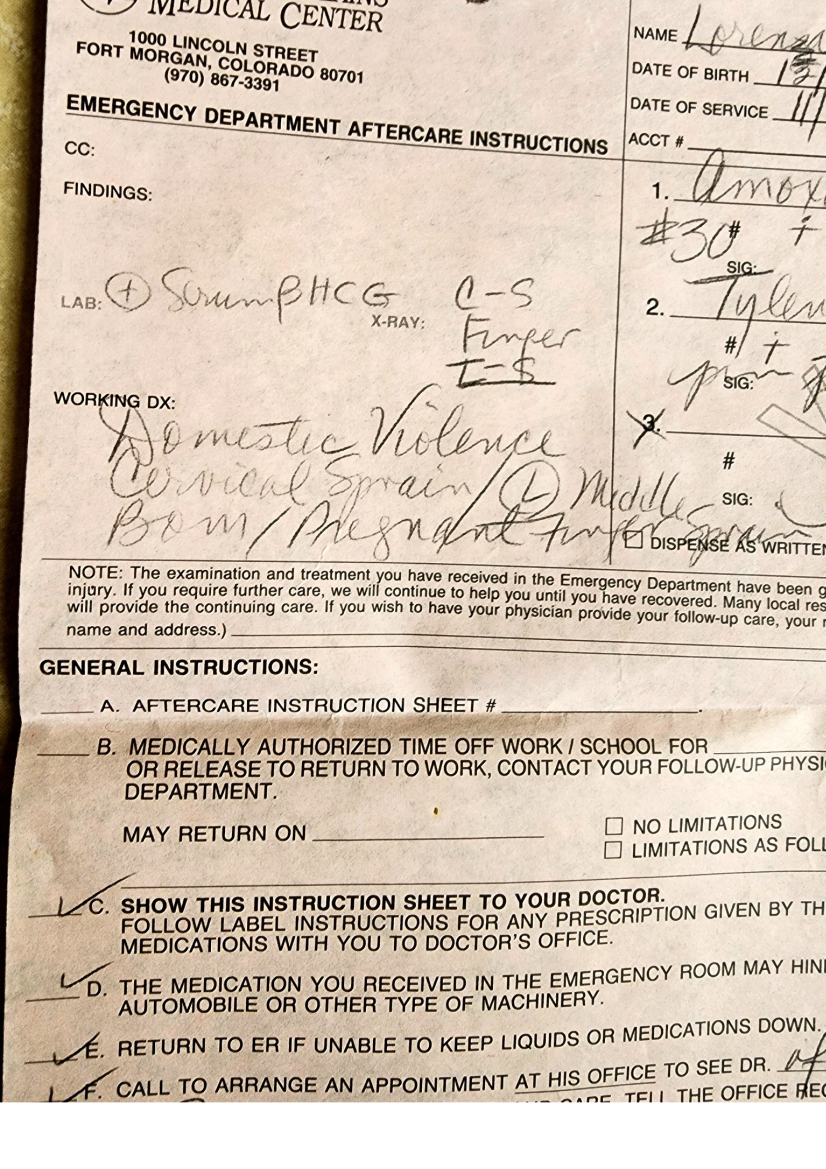 MEDICAL CENTER
1000 LINCOLN STREET
FORT MORGAN, COLORADO 80701
(970) 867-3391
EMERGENCY DEPARTMENT AFTERCARE INSTRUCTIONS
NAME
DATE OF BIRTH
DATE OF SERVICE 11/
ACCT #
CC:
FINDINGS:
LAB: (+) Serum β HCG
X-RAY: C-S
Finger
L-S
WORKING DX:
Domestic Violence
Cervical Sprain / (L) Middle
BOM / Pregnant Finger Sprain
1. Amox
#30 #
SIG:
2. Tylen
#
SIG:
3.
#
SIG:
DISPENSE AS WRITTEN
NOTE: The examination and treatment you have received in the Emergency Department have been g
injury. If you require further care, we will continue to help you until you have recovered. Many local res
will provide the continuing care. If you wish to have your physician provide your follow-up care, your
name and address.)
GENERAL INSTRUCTIONS:
A. AFTERCARE INSTRUCTION SHEET #
B. MEDICALLY AUTHORIZED TIME OFF WORK / SCHOOL FOR
OR RELEASE TO RETURN TO WORK, CONTACT YOUR FOLLOW-UP PHYSI
DEPARTMENT.
MAY RETURN ON
NO LIMITATIONS
LIMITATIONS AS FOLL
C. SHOW THIS INSTRUCTION SHEET TO YOUR DOCTOR.
FOLLOW LABEL INSTRUCTIONS FOR ANY PRESCRIPTION GIVEN BY TH
MEDICATIONS WITH YOU TO DOCTOR'S OFFICE.
D. THE MEDICATION YOU RECEIVED IN THE EMERGENCY ROOM MAY HIN
AUTOMOBILE OR OTHER TYPE OF MACHINERY.
E. RETURN TO ER IF UNABLE TO KEEP LIQUIDS OR MEDICATIONS DOWN.
F. CALL TO ARRANGE AN APPOINTMENT AT HIS OFFICE TO SEE DR.
CARE, TELL THE OFFICE REC